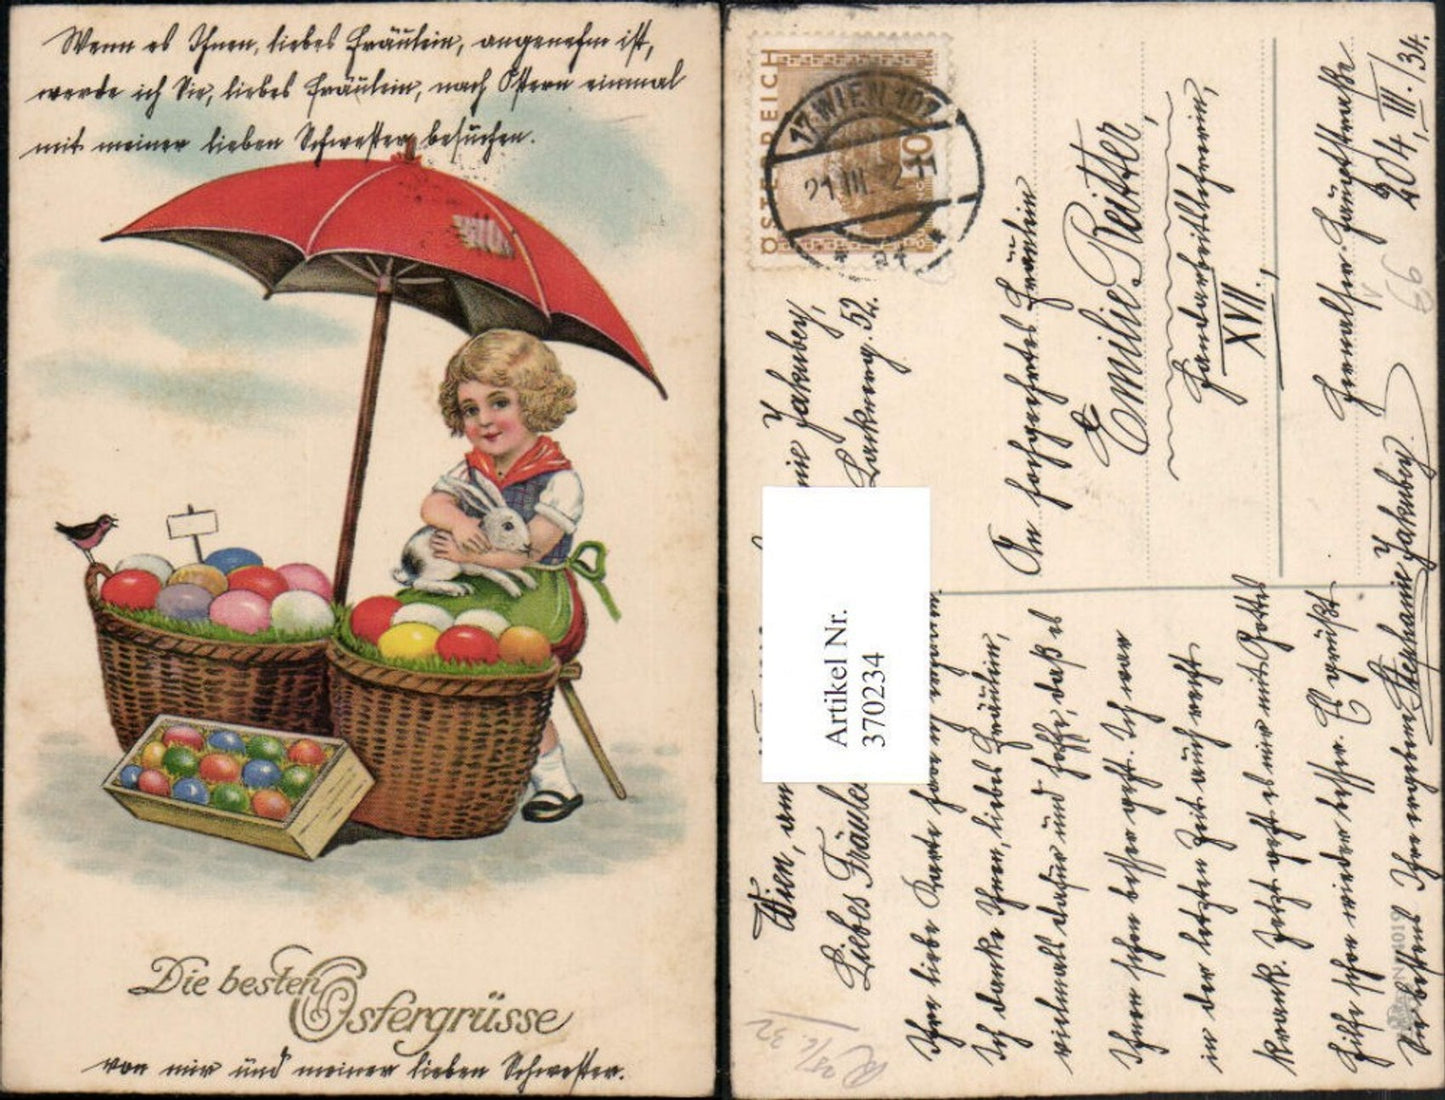 Wenn es Ihnen, liebes Fräulein, angenehm ist,
werde ich Sie, liebes Fräulein, nach Ostern einmal
mit meiner lieben Schwester besuchen.
Die besten
Ostergrüsse
von mir und meiner lieben Schwester.
ÖSTERREICH
17 WIEN 107
21.III.32
An hochgeehrtes Fräulein
Emilie Reitter,
Handarbeitslehrerin,
XVII.,
Hernalser-Hauptstraße
204, III./34.
66
Jakubey,
52.
Artikel Nr.
370234
Wien, am
Liebes Fräulein
Ihre liebe Karte habe ich
Ich danke Ihnen, liebes Fräulein,
vielmals dafür und hoffe, daß es
Ihnen schon besser geht. Ich war
in der letzten Zeit auch recht
krank. Jetzt geht es mir mit Gottes
Hilfe schon wieder besser. Es grüßt
Sie bestens Ihre ergebene Stephanie Jakubey.
4019